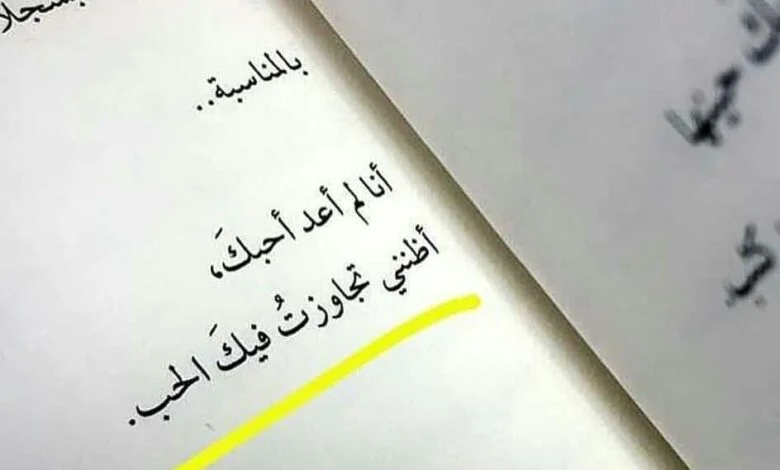 بالمناسبة..
أنا لم أعد أحبكَ،
أظنني تجاوزتُ فيكَ الحب.
حينها